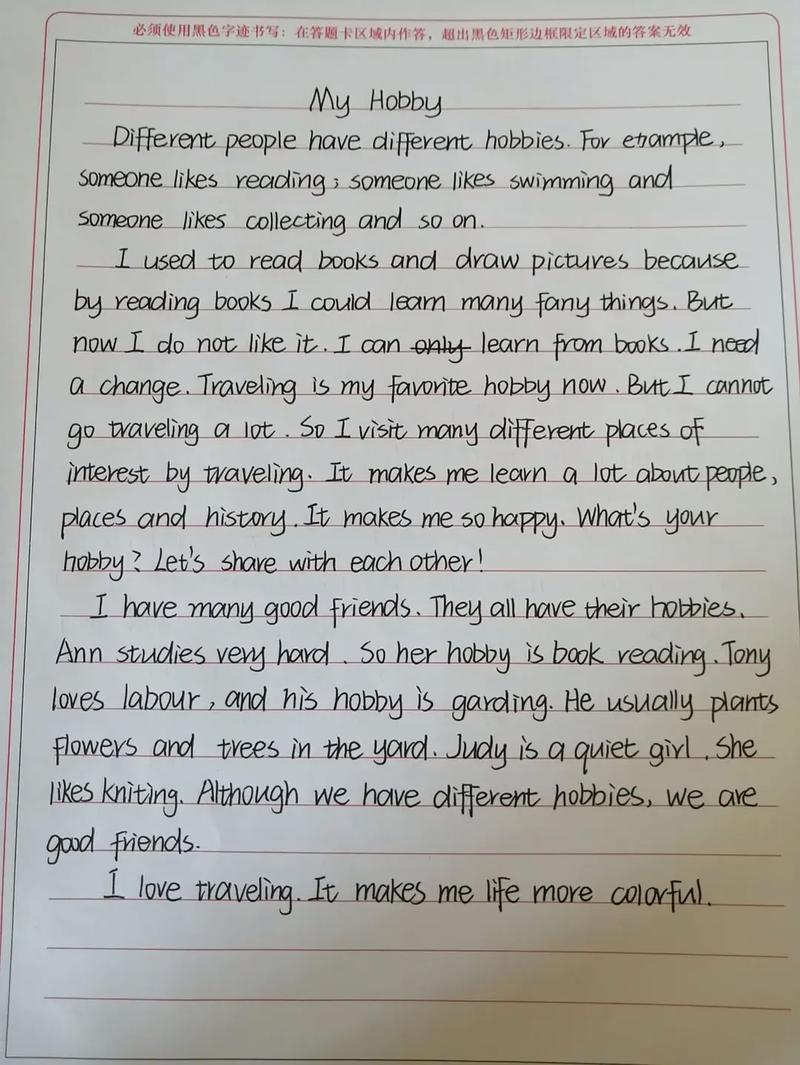 必须使用黑色字迹书写：在答题卡区域内作答，超出黑色矩形边框限定区域的答案无效
My Hobby
Different people have different hobbies. For etrample,
someone likes reading; someone likes swimming and
someone likes collecting and so on.
I used to read books and draw pictures because
by reading books I could learn many fany things. But
now I do not like it. I can only learn from books. I need
a change. Traveling is my favorite hobby now. But I cannot
go traveling a lot. So I visit many different places of
interest by traveling. It makes me learn a lot about people,
places and history. It makes me so happy. What's your
hobby? Let's share with each other!
I have many good friends. They all have their hobbies.
Ann studies very hard. So her hobby is book reading. Tony
loves labour, and his hobby is garding. He usually plants
flowers and trees in the yard. Judy is a quiet girl. She
likes kniting. Although we have different hobbies, we are
good friends.
I love traveling. It makes me life more colorful.